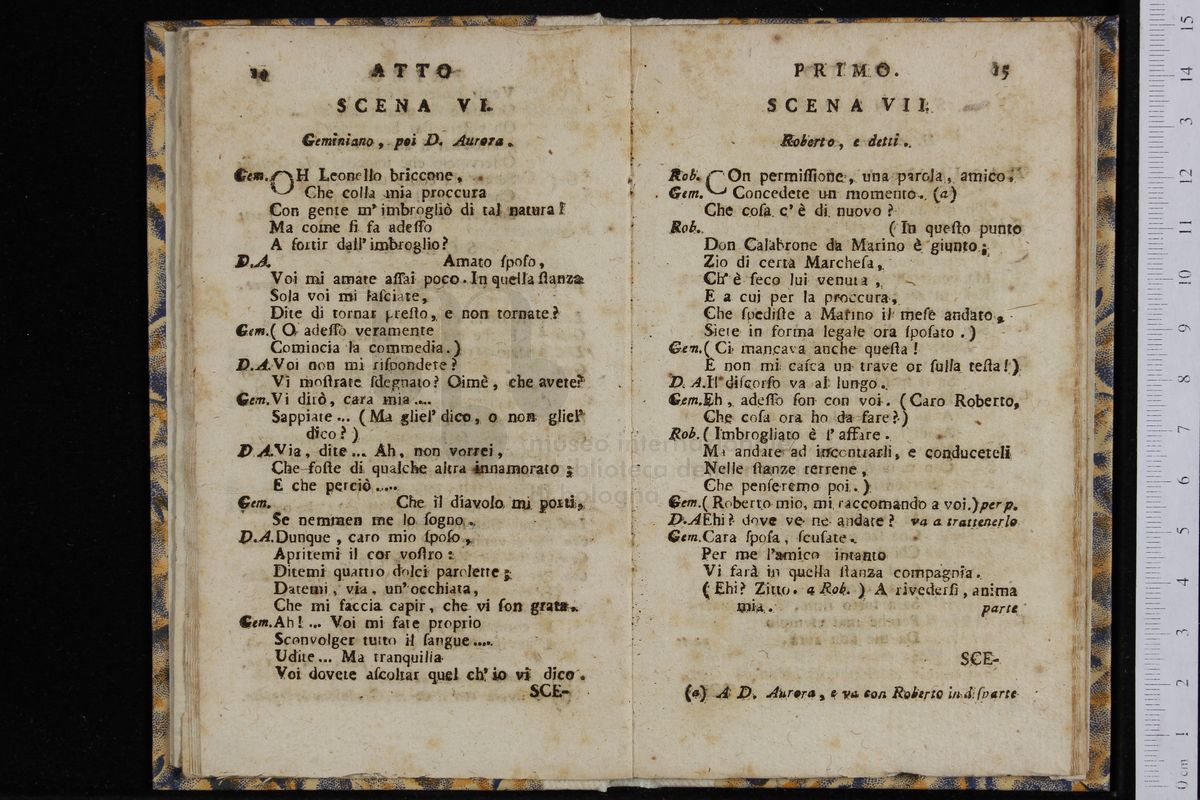 14 ATTO
SCENA VI.
Geminiano, poi D. Aurora.
Gem. OH Leonello briccone,
Che colla mia proccura
Con gente m' imbrogliò di tal natura!
Ma come ſi fa adeſſo
A ſortir dall' imbroglio?
D.A. Amato ſpoſo,
Voi mi amate aſſai poco. In quella ſtanza
Sola voi mi laſciate,
Dite di tornar preſto, e non tornate?
Gem. ( O adeſſo veramente
Comincia la commedia.)
D.A. Voi non mi riſpondete?
Vi moſtrate ſdegnato? Oimè, che avete?
Gem. Vi dirò, cara mia ....
Sappiate ... (Ma gliel' dico, o non gliel'
dico? )
D A. Via, dite... Ah, non vorrei,
Che foſte di qualche altra innamorato;
E che perciò .....
Gem. Che il diavolo mi porti,
Se nemmen me lo ſogno.
D.A. Dunque, caro mio ſpoſo,
Apritemi il cor voſtro:
Ditemi quattro dolci parolette;
Datemi, via, un' occhiata,
Che mi faccia capir, che vi ſon grata.
Gem. Ah! ... Voi mi fate proprio
Sconvolger tutto il ſangue ....
Udite... Ma tranquilla
Voi dovete aſcoltar quel ch' io vi dico.
SCE-
PRIMO. 15
SCENA VII.
Roberto, e detti.
Rob. COn permiſſione, una parola, amico.
Gem. Concedete un momento. (a)
Che coſa c' è di nuovo?
Rob. (In queſto punto
Don Calabrone da Marino è giunto;
Zio di certa Marcheſa,
Ch' è ſeco lui venuta,
E a cui per la proccura,
Che ſpediſte a Marino il meſe andato,
Siete in forma legale ora ſpoſato.)
Gem. (Ci mancava anche queſta!
E non mi caſca un trave or ſulla teſta!)
D. A. Il diſcorſo va al lungo.
Gem. Eh, adeſſo ſon con voi. (Caro Roberto,
Che coſa ora ho da fare?)
Rob. (Imbrogliato è l' affare.
Ma andate ad incontrarli, e conduceteli
Nelle ſtanze terrene,
Che penſeremo poi.)
Gem. (Roberto mio, mi raccomando a voi.) per p.
D.A Ehi? dove ve ne andate? va a trattenerlo
Gem. Cara ſpoſa, ſcuſate.
Per me l'amico intanto
Vi farà in quella ſtanza compagnia.
(Ehi? Zitto. a Rob. ) A rivederſi, anima
mia. parte
SCE-
(a) A D. Aurora, e va con Roberto in diſparte